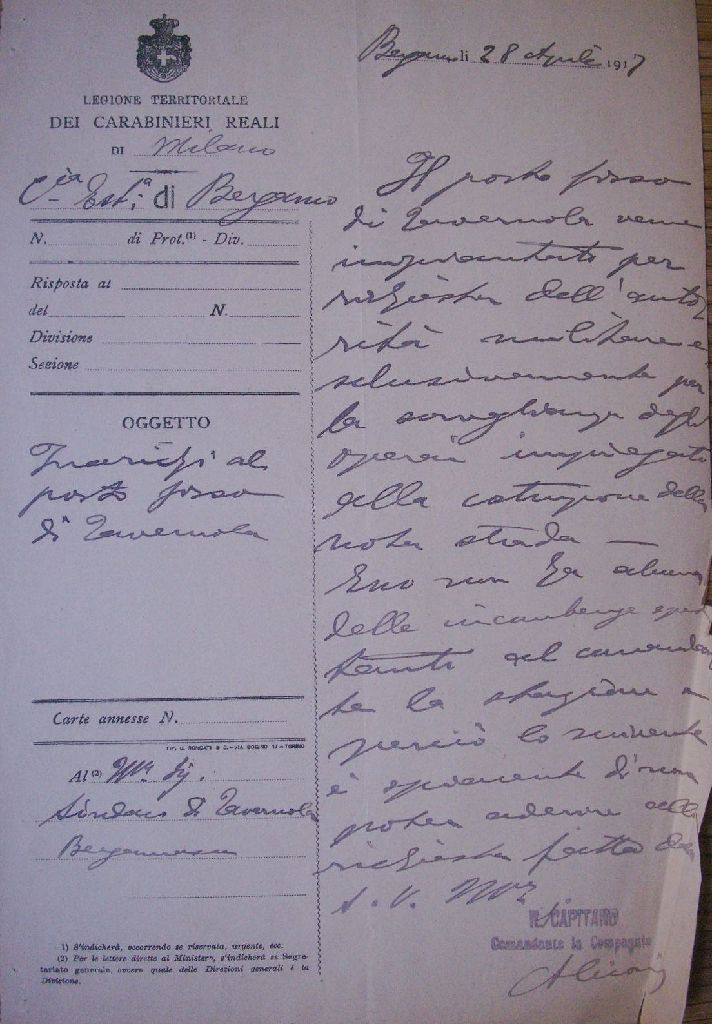 Bergamo li 28 Aprile 1917
LEGIONE TERRITORIALE
DEI CARABINIERI REALI
DI Milano
C.ia Est.a di Bergamo
N. di Prot.(1) - Div.
Risposta al
del N.
Divisione
Sezione
OGGETTO
Incarichi al
posto fisso
di Tavernola
Carte annesse N.
Al (2) Ill. Sig.
Sindaco di Tavernola
Bergamasca
1) S'indicherà, occorrendo se riservata, urgente, ecc.
(2) Per le lettere dirette ai Ministeri, s'indicherà se Segre-
tariato generale, ovvero quale delle Direzioni generali e la
Divisione.
Il posto fisso
di Tavernola venne
impiantato per
richiesta dell'auto
rità militare e
sclusivamente per
la sorveglianza degli
operai impiegati
alla costruzione della
nota strada —
Esso non ha alcuna
delle incombenze spet
tanti al comandan
te la stazione e
perciò lo scrivente
è spiacente di non
poter aderire alla
richiesta fatta dalla
S. V. Ill.
IL CAPITANO
Comandante la Compagnia